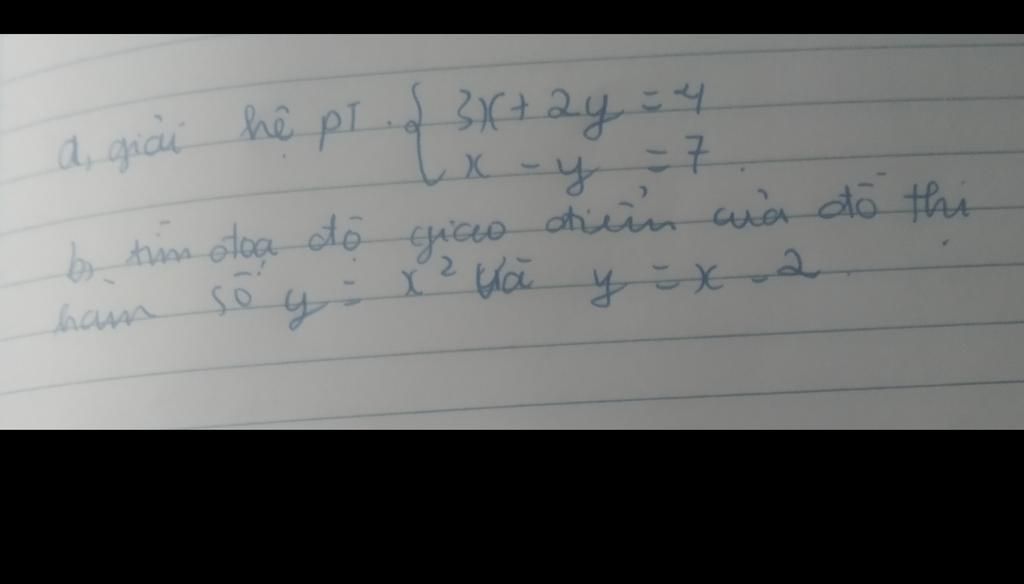 a, giải hệ pT. { 3x + 2y = 4
x - y = 7.
b, tìm đọa độ giao điểm của đồ thị
hàm số y = x² và y = x - 2.